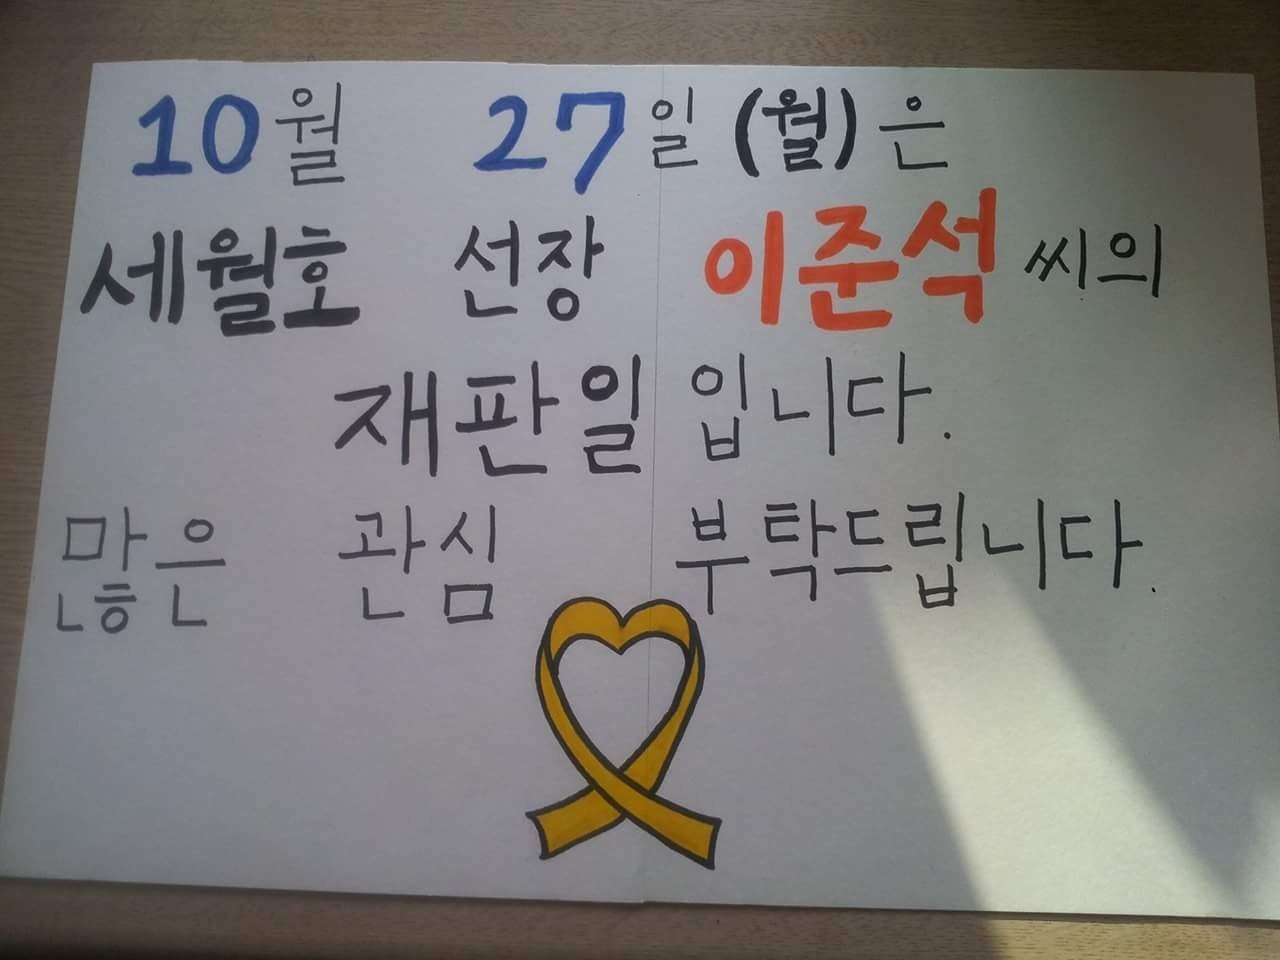 10월 27일 (월)은
세월호 선장 이준석 씨의
재판일 입니다.
많은 관심 부탁드립니다.